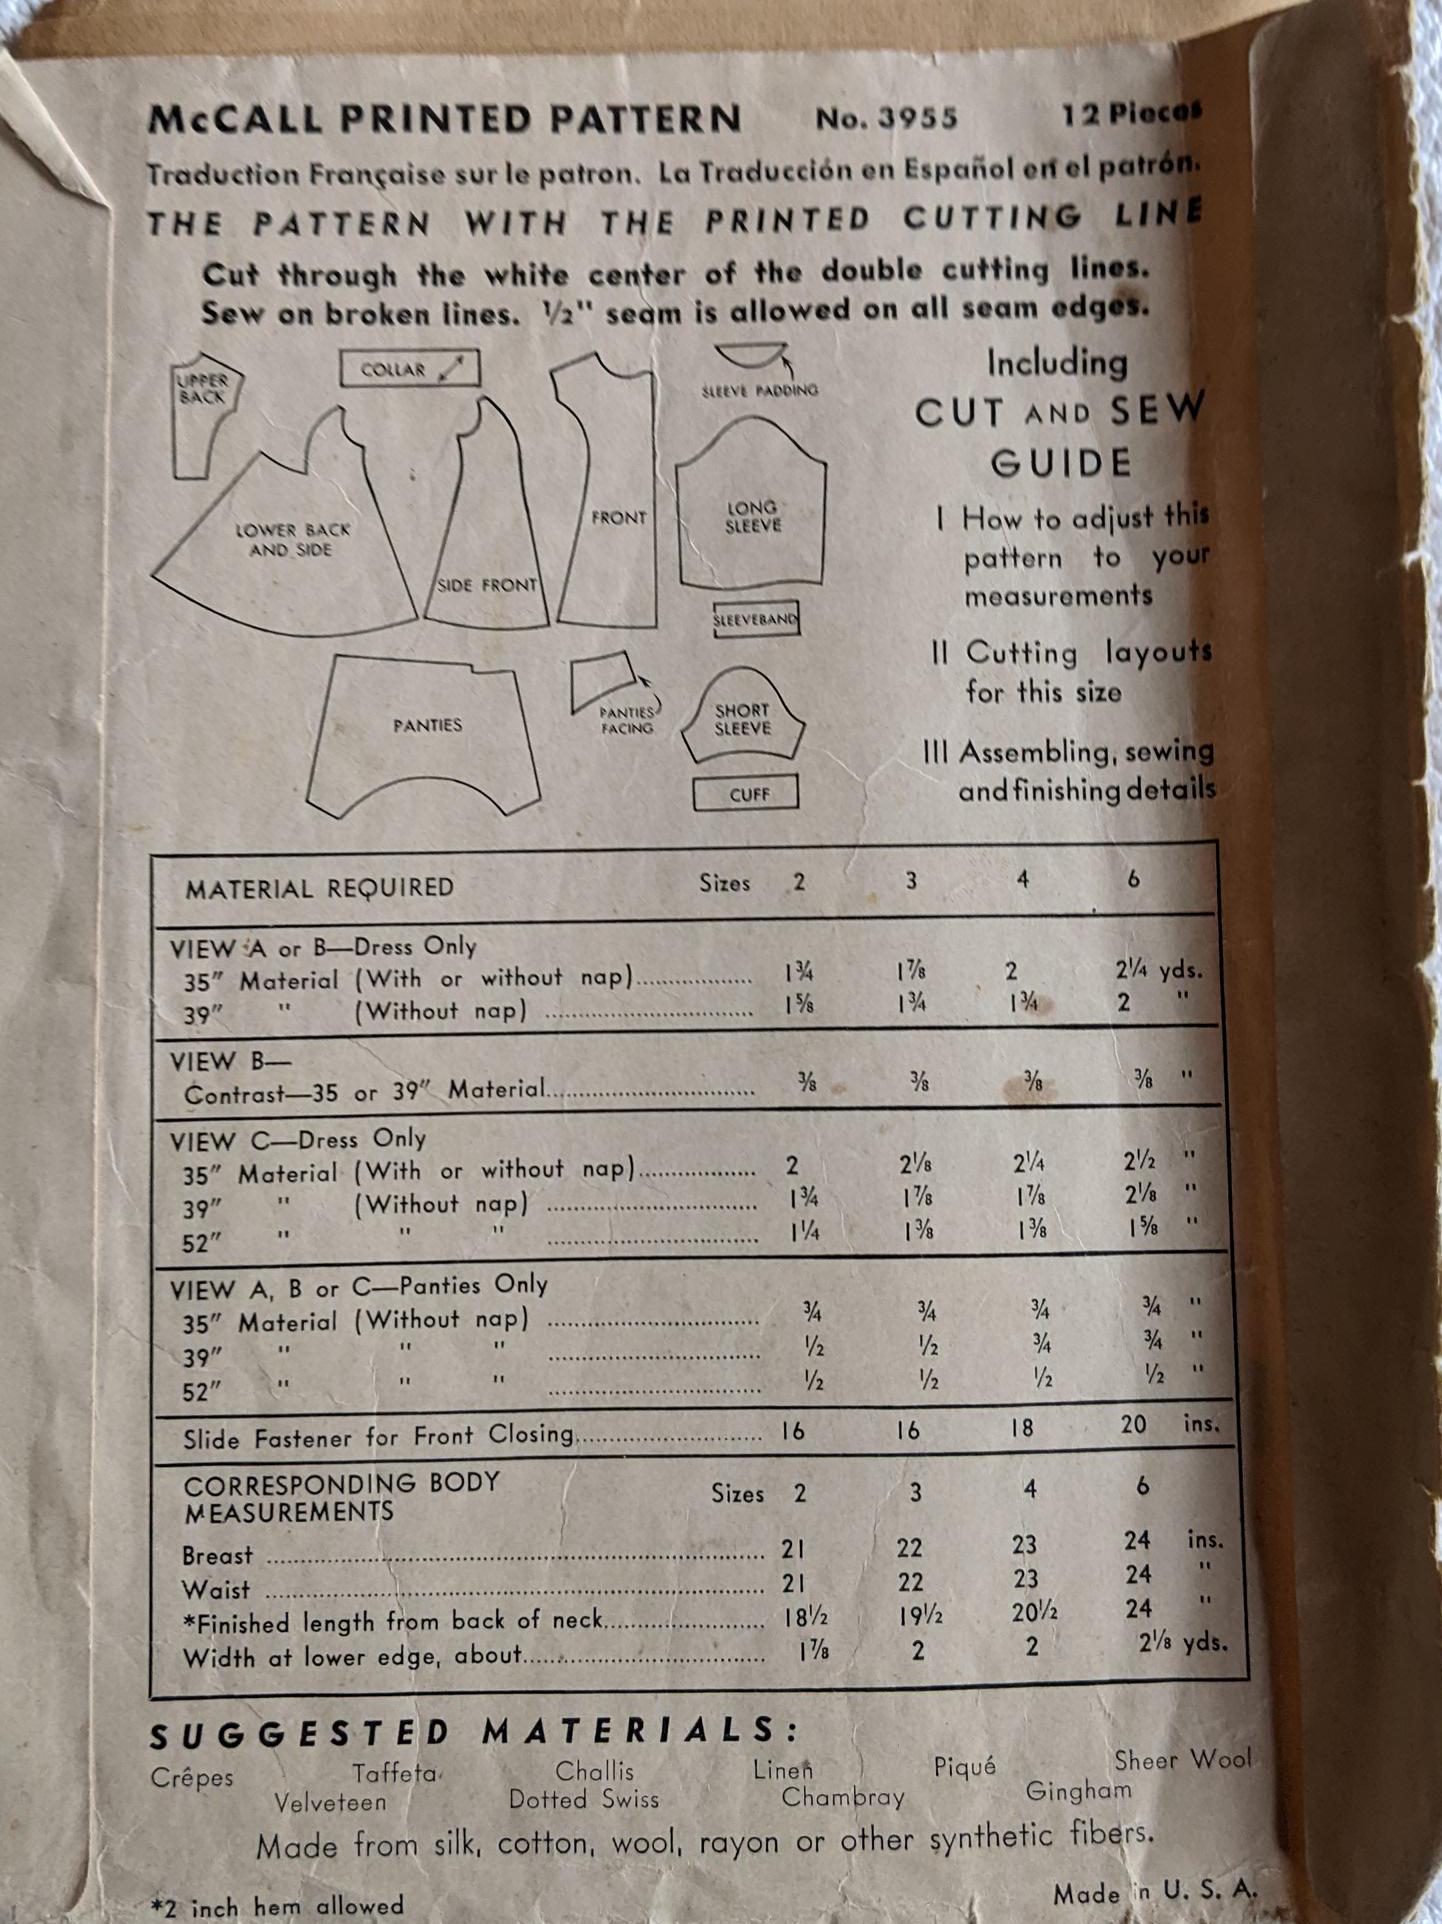 McCALL PRINTED PATTERN No. 3955 12 Pieces
Traduction Française sur le patron. La Traducción en Español en el patrón.
THE PATTERN WITH THE PRINTED CUTTING LINE
Cut through the white center of the double cutting lines.
Sew on broken lines. ½" seam is allowed on all seam edges.
UPPER
BACK
COLLAR
SLEEVE PADDING
LOWER BACK
AND SIDE
SIDE FRONT
FRONT
LONG
SLEEVE
SLEEVEBAND
PANTIES
PANTIES
FACING
SHORT
SLEEVE
CUFF
Including
CUT AND SEW
GUIDE
I How to adjust this
pattern to your
measurements
II Cutting layouts
for this size
III Assembling, sewing
and finishing details
MATERIAL REQUIRED Sizes 2 3 4 6
VIEW A or B—Dress Only
35" Material (With or without nap)................. 1¾ 1⅞ 2 2¼ yds.
39" " (Without nap) ............................... 1⅝ 1¾ 1¾ 2 "
VIEW B—
Contrast—35 or 39" Material.............................. ⅜ ⅜ ⅜ ⅜ "
VIEW C—Dress Only
35" Material (With or without nap)................. 2 2⅛ 2¼ 2½ "
39" " (Without nap) ............................... 1¾ 1⅞ 1⅞ 2⅛ "
52" " " " ............................... 1¼ 1⅜ 1⅜ 1⅝ "
VIEW A, B or C—Panties Only
35" Material (Without nap) ............................... ¾ ¾ ¾ ¾ "
39" " " " ............................... ½ ½ ¾ ¾ "
52" " " " ............................... ½ ½ ½ ½ "
Slide Fastener for Front Closing........................... 16 16 18 20 ins.
CORRESPONDING BODY
MEASUREMENTS Sizes 2 3 4 6
Breast ........................................................................ 21 22 23 24 ins.
Waist ........................................................................ 21 22 23 24 "
*Finished length from back of neck....................... 18½ 19½ 20½ 24 "
Width at lower edge, about................................... 1⅞ 2 2 2⅛ yds.
SUGGESTED MATERIALS:
Crêpes Taffeta Challis Linen Piqué Sheer Wool
Velveteen Dotted Swiss Chambray Gingham
Made from silk, cotton, wool, rayon or other synthetic fibers.
*2 inch hem allowed Made in U. S. A.